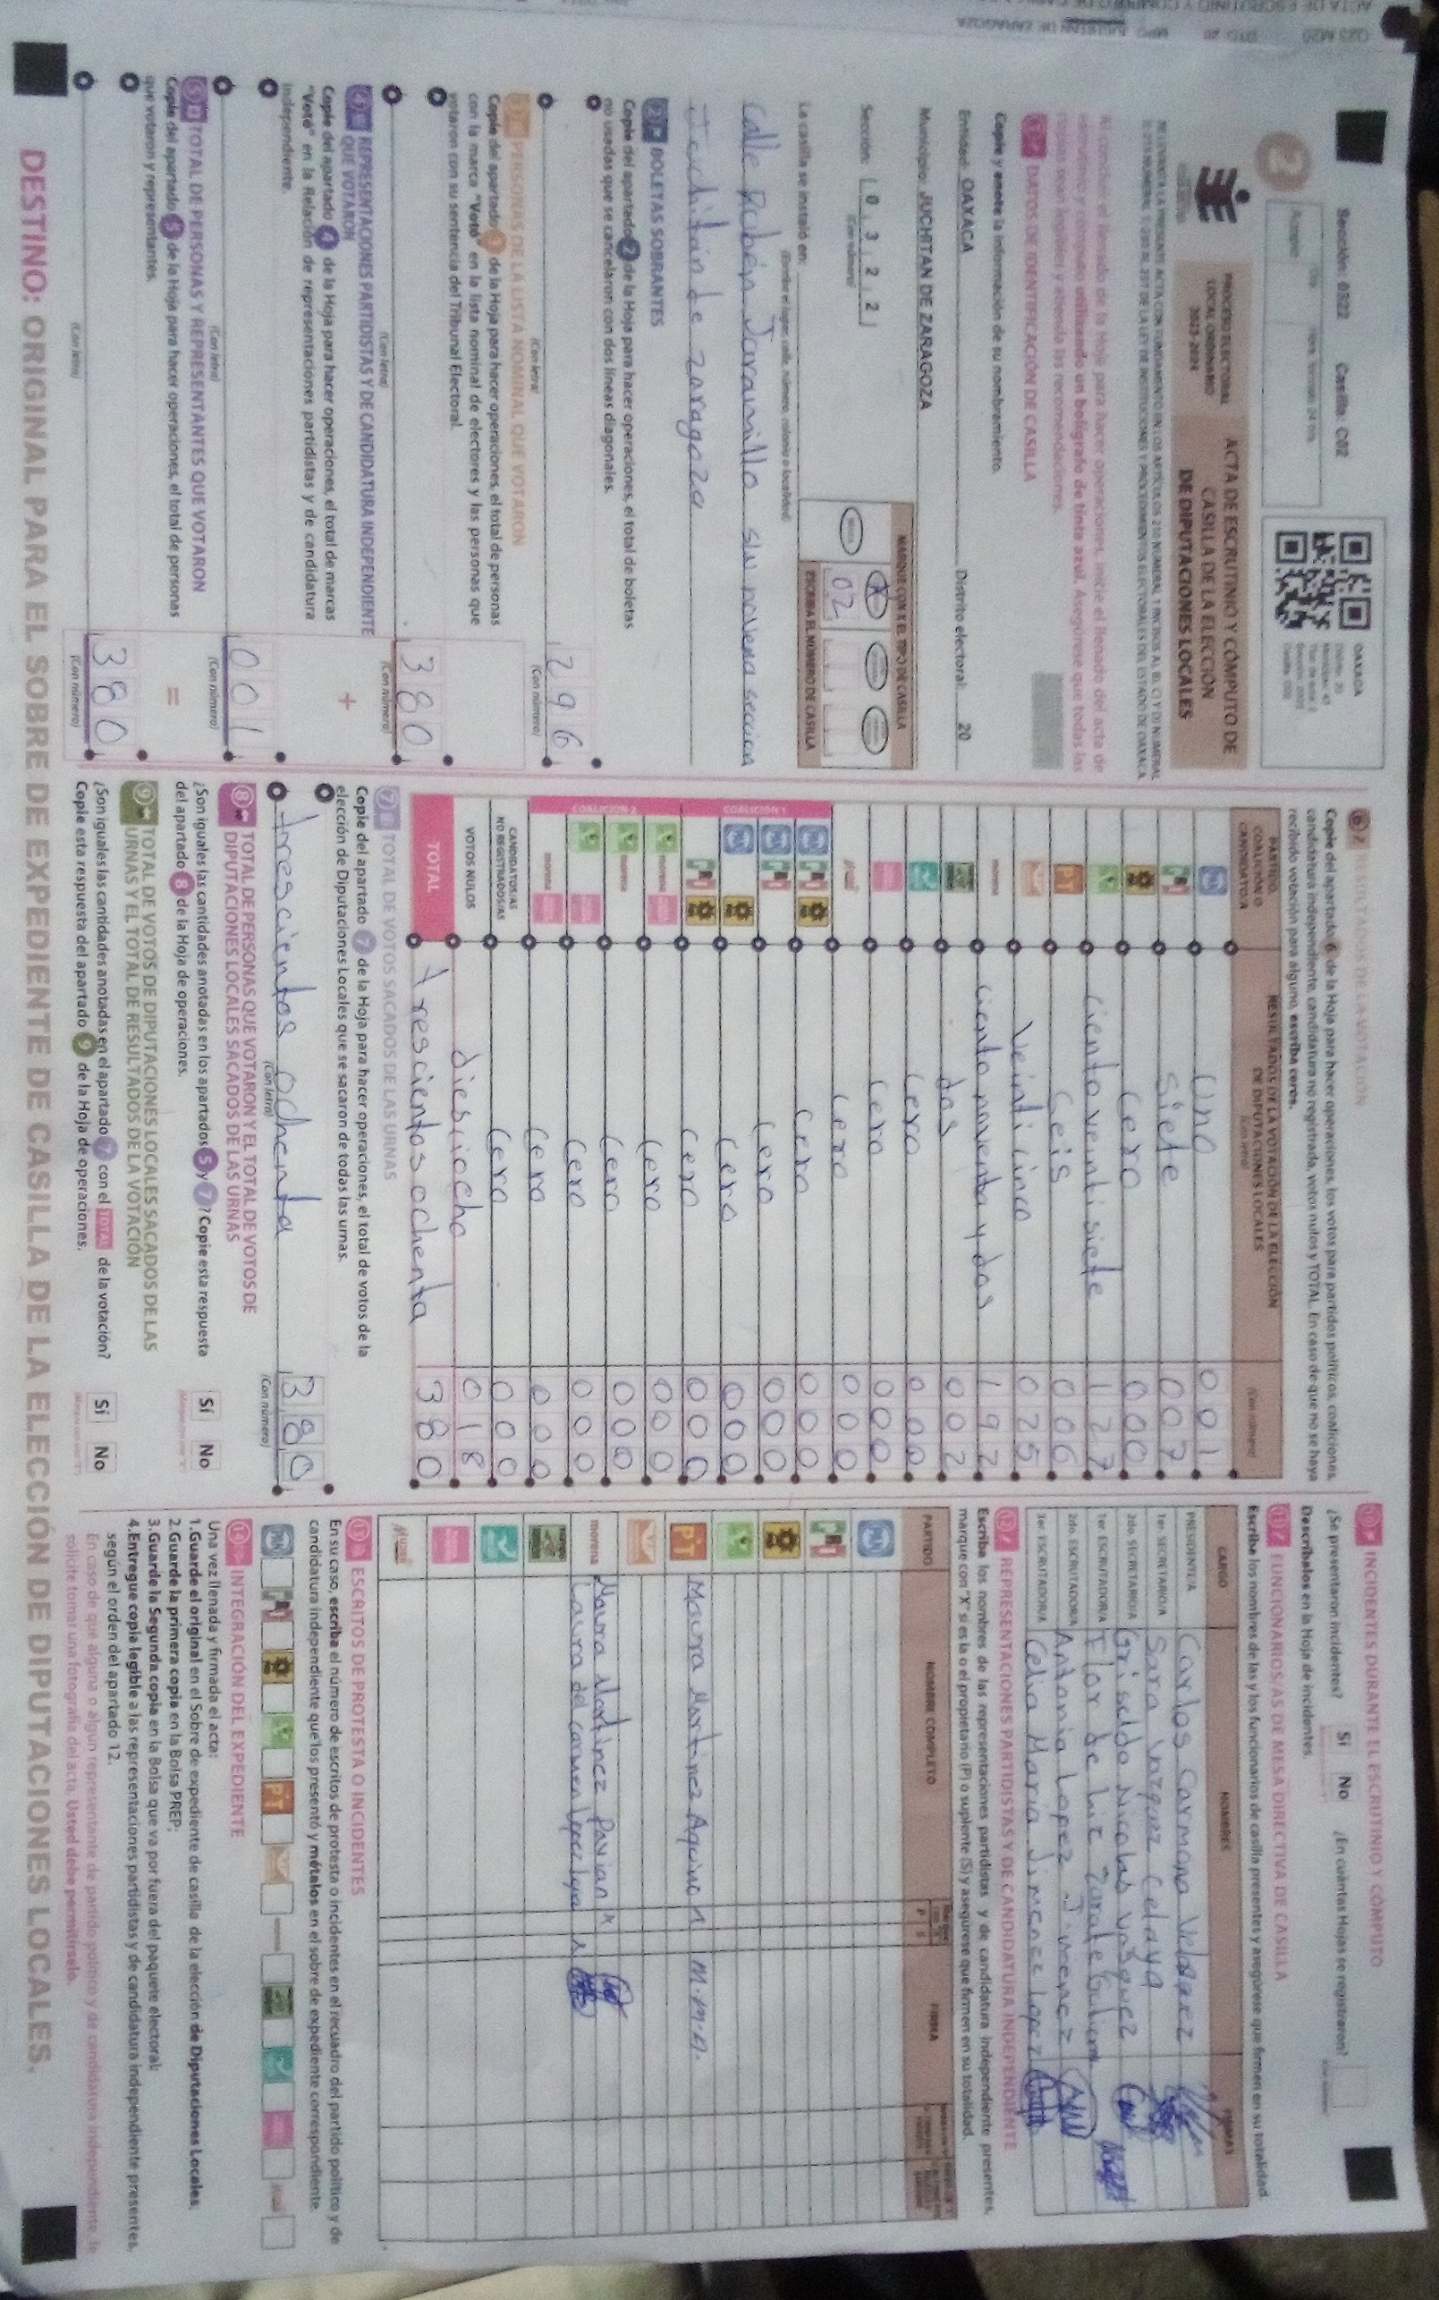 Sección: 0322 Casilla: C02
OAXACA
2
PROCESO ELECTORAL
LOCAL ORDINARIO
2023-2024
ACTA DE ESCRUTINIO Y CÓMPUTO DE
CASILLA DE LA ELECCIÓN
DE DIPUTACIONES LOCALES
Al concluir el llenado de la Hoja para hacer operaciones, inicie el llenado del acta de
utilizando un bolígrafo de tinta azul. Asegúrese que todas las
1 DATOS DE IDENTIFICACIÓN DE CASILLA
Copie y anote la información de su nombramiento.
Entidad: OAXACA Distrito electoral: 20
Municipio: JUCHITAN DE ZARAGOZA
Sección: 0 3 2 2
(Con número)
MARQUE CON X EL TIPO DE CASILLA
X
02
ESCRIBA EL NÚMERO DE CASILLA
La casilla se instaló en:
(Escriba el lugar: calle, número, colonia o localidad)
calle Rubén Jaramillo S/N novena seccion
Juchitán de Zaragoza
2 BOLETAS SOBRANTES
Copie del apartado 2 de la Hoja para hacer operaciones, el total de boletas
no usadas que se cancelaron con dos líneas diagonales.
(Con letra)
296
(Con número)
3 PERSONAS DE LA LISTA NOMINAL QUE VOTARON
Copie del apartado 3 de la Hoja para hacer operaciones, el total de personas
con la marca "Votó" en la lista nominal de electores y las personas que
votaron con su sentencia del Tribunal Electoral.
(Con letra)
380
(Con número)
4 REPRESENTACIONES PARTIDISTAS Y DE CANDIDATURA INDEPENDIENTE
QUE VOTARON
+
Copie del apartado 4 de la Hoja para hacer operaciones, el total de marcas
"Votó" en la Relación de representaciones partidistas y de candidatura
independiente.
(Con letra)
001
(Con número)
5 TOTAL DE PERSONAS Y REPRESENTANTES QUE VOTARON
=
Copie del apartado 5 de la Hoja para hacer operaciones, el total de personas
que votaron y representantes.
(Con letra)
380
(Con número)
6 RESULTADOS DE LA VOTACIÓN
Copie del apartado 6 de la Hoja para hacer operaciones, los votos para partidos políticos, coaliciones,
candidatura independiente, candidatura no registrada, votos nulos y TOTAL. En caso de que no se haya
recibido votación para alguno, escriba ceros.
PARTIDO,
COALICIÓN O
CANDIDATURA
RESULTADOS DE LA VOTACIÓN DE LA ELECCIÓN
DE DIPUTACIONES LOCALES
(Con letra)
(Con número)
PAN Uno 001
PRI Siete 007
Cero 000
Ciento veintisiete 127
PT Seis 006
Veinticinco 025
morena Ciento noventa y dos 192
dos 002
cero 000
cero 000
cero 000
COALICIÓN 1
cero 000
cero 000
cero 000
cero 000
COALICIÓN 2
cero 000
cero 000
cero 000
cero 000
CANDIDATOS/AS
NO REGISTRADOS/AS cero 000
VOTOS NULOS diesiocho 018
TOTAL trescientos ochenta 380
7 TOTAL DE VOTOS SACADOS DE LAS URNAS
Copie del apartado 7 de la Hoja para hacer operaciones, el total de votos de la
elección de Diputaciones Locales que se sacaron de todas las urnas.
trescientos ochenta 380
(Con letra) (Con número)
8 TOTAL DE PERSONAS QUE VOTARON Y EL TOTAL DE VOTOS DE
DIPUTACIONES LOCALES SACADOS DE LAS URNAS
¿Son iguales las cantidades anotadas en los apartados 5 y 7? Copie esta respuesta
del apartado 8 de la Hoja de operaciones.
Sí No
9 TOTAL DE VOTOS DE DIPUTACIONES LOCALES SACADOS DE LAS
URNAS Y EL TOTAL DE RESULTADOS DE LA VOTACIÓN
¿Son iguales las cantidades anotadas en el apartado 7 con el TOTAL de la votación?
Copie esta respuesta del apartado 9 de la Hoja de operaciones.
Sí No
10 INCIDENTES DURANTE EL ESCRUTINIO Y CÓMPUTO
¿Se presentaron incidentes? Sí No ¿En cuántas Hojas se registraron?
Descríbalos en la Hoja de incidentes.
11 FUNCIONARIOS/AS DE MESA DIRECTIVA DE CASILLA
Escriba los nombres de las y los funcionarios de casilla presentes y asegúrese que firmen en su totalidad.
CARGO NOMBRES FIRMAS
PRESIDENTE/A Carlos Carmona Velazquez
1er. SECRETARIO/A Sara Vazquez Celaya
2do. SECRETARIO/A Griselda Nicolas Vasquez
1er. ESCRUTADOR/A Flor de Liz Zarate
2do. ESCRUTADOR/A Antonia Lopez Jimenez
3er. ESCRUTADOR/A Celia Maria Jimenez Lopez
12 REPRESENTACIONES PARTIDISTAS Y DE CANDIDATURA INDEPENDIENTE
Escriba los nombres de las representaciones partidistas y de candidatura independiente presentes,
marque con "X" si es la o el propietario (P) o suplente (S) y asegúrese que firmen en su totalidad.
PARTIDO NOMBRE COMPLETO P S FIRMA
PAN
PRI
PT Maura Martinez Aquino M.M.A.
morena Maura Martinez
Laura del carmen
13 ESCRITOS DE PROTESTA O INCIDENTES
En su caso, escriba el número de escritos de protesta o incidentes en el recuadro del partido político y de
candidatura independiente que los presentó y métalos en el sobre de expediente correspondiente.
14 INTEGRACIÓN DEL EXPEDIENTE
Una vez llenada y firmada el acta:
1.Guarde el original en el Sobre de expediente de casilla de la elección de Diputaciones Locales.
2.Guarde la primera copia en la Bolsa PREP;
3.Guarde la Segunda copia en la Bolsa que va por fuera del paquete electoral;
4.Entregue copia legible a las representaciones partidistas y de candidatura independiente presentes,
según el orden del apartado 12.
En caso de que alguna o algún representante de partido político y de candidatura independiente, le
solicite tomar una fotografía del acta. Usted debe permitírselo.
DESTINO: ORIGINAL PARA EL SOBRE DE EXPEDIENTE DE CASILLA DE LA ELECCIÓN DE DIPUTACIONES LOCALES.